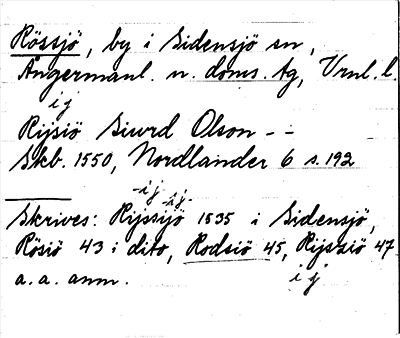 Rössjö, by i Sidensjö sn,
Ångermanl. n. doms. tg, Vrnl. l.
ij
Rijsiö Siurd Olson - -
Skb. 1550, Nordlander 6 s. 192
-ij -ij-
Skrives: Rijssijö 1535 i Sidensjö,
Rösiö 43 i dito, Rodsiö 45, Rijssiö 47
a. a. anm. ij